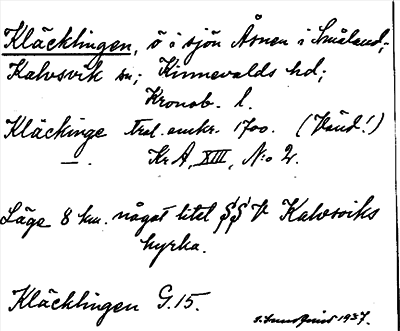 Kläcklingen, ö i sjön Åsnen i Småland;
Kalvsvik sn; Kinnevalds hd;
Kronob. l.
Kläckinge trol. omkr. 1700. (Vänd!)
— . Kr A, XIII, N:o 2.
Läge 8 km. något litet S V Kalvsviks
kyrka.
Kläcklingen G.15.
1937.